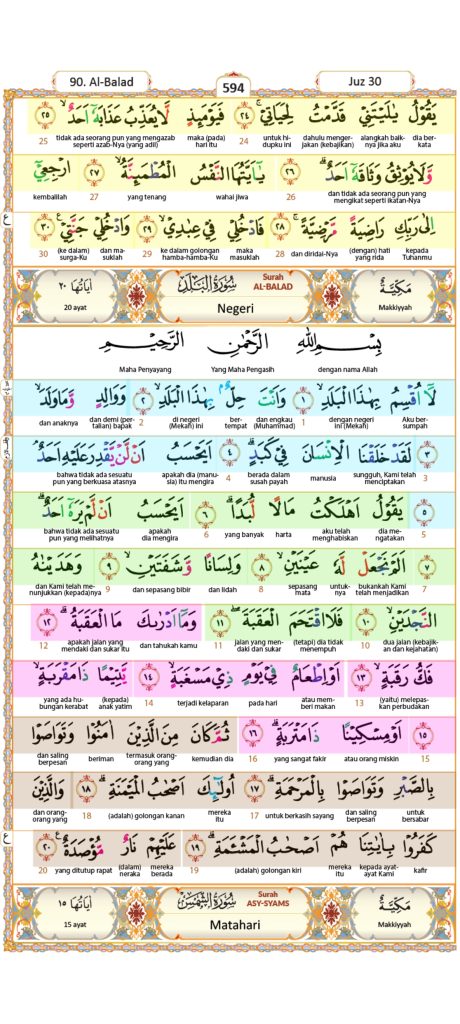 90. Al-Balad
594
Juz 30
يَقُوْلُ يٰلَيْتَنِيْ قَدَّمْتُ لِحَيَاتِيْۚ ۝٢٤ فَيَوْمَىِٕذٍ لَّا يُعَذِّبُ عَذَابَهٗٓ اَحَدٌۙ ۝٢٥
dia ber-kata alangkah baik-nya jika aku dahulu menger-jakan (kebajikan) untuk hi-dupku ini 24 maka (pada) hari itu tidak ada seorang pun yang mengazab seperti azab-Nya (yang adil) 25
وَّلَا يُوْثِقُ وَثَاقَهٗٓ اَحَدٌۗ ۝٢٦ يٰٓاَيَّتُهَا النَّفْسُ الْمُطْمَىِٕنَّةُۙ ۝٢٧ ارْجِعِيْٓ
dan tidak ada seorang pun yang mengikat seperti ikatan-Nya 26 wahai jiwa yang tenang 27 kembalilah
اِلٰى رَبِّكِ رَاضِيَةً مَّرْضِيَّةًۚ ۝٢٨ فَادْخُلِيْ فِيْ عِبٰدِيْۙ ۝٢٩ وَادْخُلِيْ جَنَّتِيْ ۝٣٠
kepada Tuhanmu (dengan) hati yang rida dan diridai-Nya 28 maka masuklah ke dalam golongan hamba-hamba-Ku 29 dan ma-suklah (ke dalam) surga-Ku 30
مَكِّيَّةٌ
Makkiyyah
Surah AL-BALAD
سُوْرَةُ الْبَلَدِ
Negeri
اٰيَاتُهَا ٢٠
20 ayat
بِسْمِ اللّٰهِ الرَّحْمٰنِ الرَّحِيْمِ
dengan nama Allah Yang Maha Pengasih Maha Penyayang
لَآ اُقْسِمُ بِهٰذَا الْبَلَدِۙ ۝١ وَاَنْتَ حِلٌّۢ بِهٰذَا الْبَلَدِۙ ۝٢ وَوَالِدٍ وَّمَا وَلَدَۙ
Aku ber-sumpah dengan negeri ini (Mekah) 1 dan engkau (Muhammad) ber-tempat di negeri (Mekah) ini 2 dan demi (per-talian) bapak dan anaknya
۝٣ لَقَدْ خَلَقْنَا الْاِنْسَانَ فِيْ كَبَدٍۗ ۝٤ اَيَحْسَبُ اَنْ لَّنْ يَّقْدِرَ عَلَيْهِ اَحَدٌۘ
3 sungguh, Kami telah menciptakan manusia berada dalam susah payah 4 apakah dia (manu-sia) itu mengira bahwa tidak ada sesuatu pun yang berkuasa atasnya
۝٥ يَقُوْلُ اَهْلَكْتُ مَالًا لُّبَدًاۗ ۝٦ اَيَحْسَبُ اَنْ لَّمْ يَرَهٗٓ اَحَدٌۗ
5 dia me-ngatakan aku telah menghabiskan harta yang banyak 6 apakah dia mengira bahwa tidak ada sesuatu pun yang melihatnya
۝٧ اَلَمْ نَجْعَلْ لَّهٗ عَيْنَيْنِۙ ۝٨ وَلِسَانًا وَّشَفَتَيْنِۙ ۝٩ وَهَدَيْنٰهُ
7 bukankah Kami telah menjadikan untuk-nya sepasang mata 8 dan lidah dan sepasang bibir 9 dan Kami telah me-nunjukkan (kepada)nya
النَّجْدَيْنِۙ ۝١٠ فَلَا اقْتَحَمَ الْعَقَبَةَۖ ۝١١ وَمَآ اَدْرٰىكَ مَا الْعَقَبَةُۗ ۝١٢
dua jalan (kebajik-an dan kejahatan) 10 (tetapi) dia tidak menempuh jalan yang men-daki dan sukar 11 dan tahukah kamu apakah jalan yang mendaki dan sukar itu 12
فَكُّ رَقَبَةٍۙ ۝١٣ اَوْ اِطْعَامٌ فِيْ يَوْمٍ ذِيْ مَسْغَبَةٍۙ ۝١٤ يَّتِيْمًا ذَا مَقْرَبَةٍۙ
(yaitu) melepas-kan perbudakan 13 atau mem-beri makan pada hari terjadi kelaparan 14 (kepada) anak yatim yang ada hu-bungan kerabat
۝١٥ اَوْ مِسْكِيْنًا ذَا مَتْرَبَةٍۗ ۝١٦ ثُمَّ كَانَ مِنَ الَّذِيْنَ اٰمَنُوْا وَتَوَاصَوْا
15 atau orang miskin yang sangat fakir 16 kemudian dia termasuk orang-orang yang beriman dan saling berpesan
بِالصَّبْرِ وَتَوَاصَوْا بِالْمَرْحَمَةِۗ ۝١٧ اُولٰۤىِٕكَ اَصْحٰبُ الْمَيْمَنَةِۗ ۝١٨ وَالَّذِيْنَ
untuk bersabar dan saling berpesan untuk berkasih sayang 17 mereka itu (adalah) golongan kanan 18 dan orang-orang yang
كَفَرُوْا بِاٰيٰتِنَا هُمْ اَصْحٰبُ الْمَشْـَٔمَةِۗ ۝١٩ عَلَيْهِمْ نَارٌ مُّؤْصَدَةٌ ۝٢٠
kafir kepada ayat-ayat Kami mereka itu (adalah) golongan kiri 19 mereka berada (dalam) neraka yang ditutup rapat 20
مَكِّيَّةٌ
Makkiyyah
Surah ASY-SYAMS
سُوْرَةُ الشَّمْسِ
Matahari
اٰيَاتُهَا ١٥
15 ayat